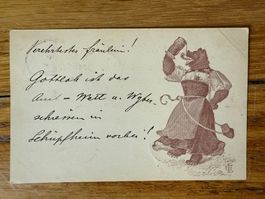 Verehrtestes Fräulein!
Gottlob ist das
Amt- Wett u. Wyber-
schiessen in
Schüpfheim vorbei!